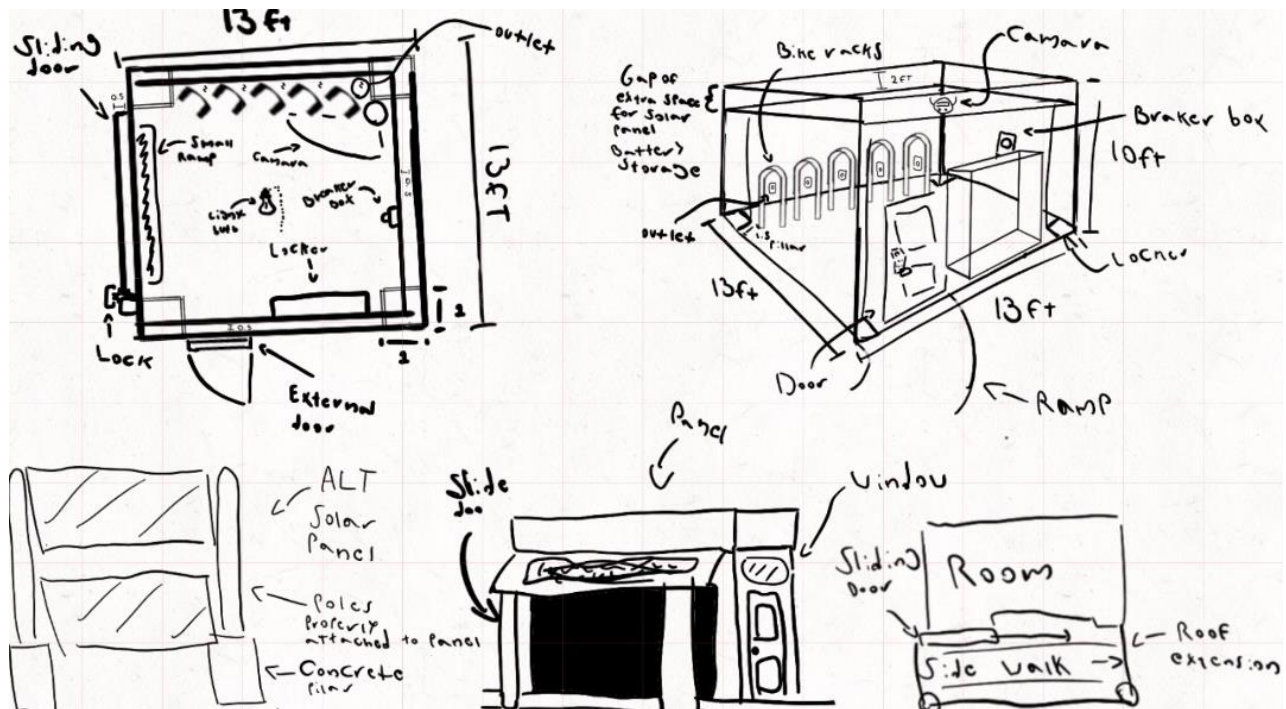 13 ft
Sliding
door
outlet
0.5
Small
Ramp
Camara
Braker
box
13FT
Locker
Lock
External
door
2
Bike racks
Camara
Gap of
extra space
for Solar
panel
Battery
Storage
2FT
Braker box
10ft
outlet
1.5
Pillar
Locker
13ft
13ft
Door
Ramp
ALT
Solar
Panel
Poles
Properly
attached to Panel
Concrete
Pilar
Panel
Slide
doo
Window
Sliding
Door
Room
Side walk
Roof
extension